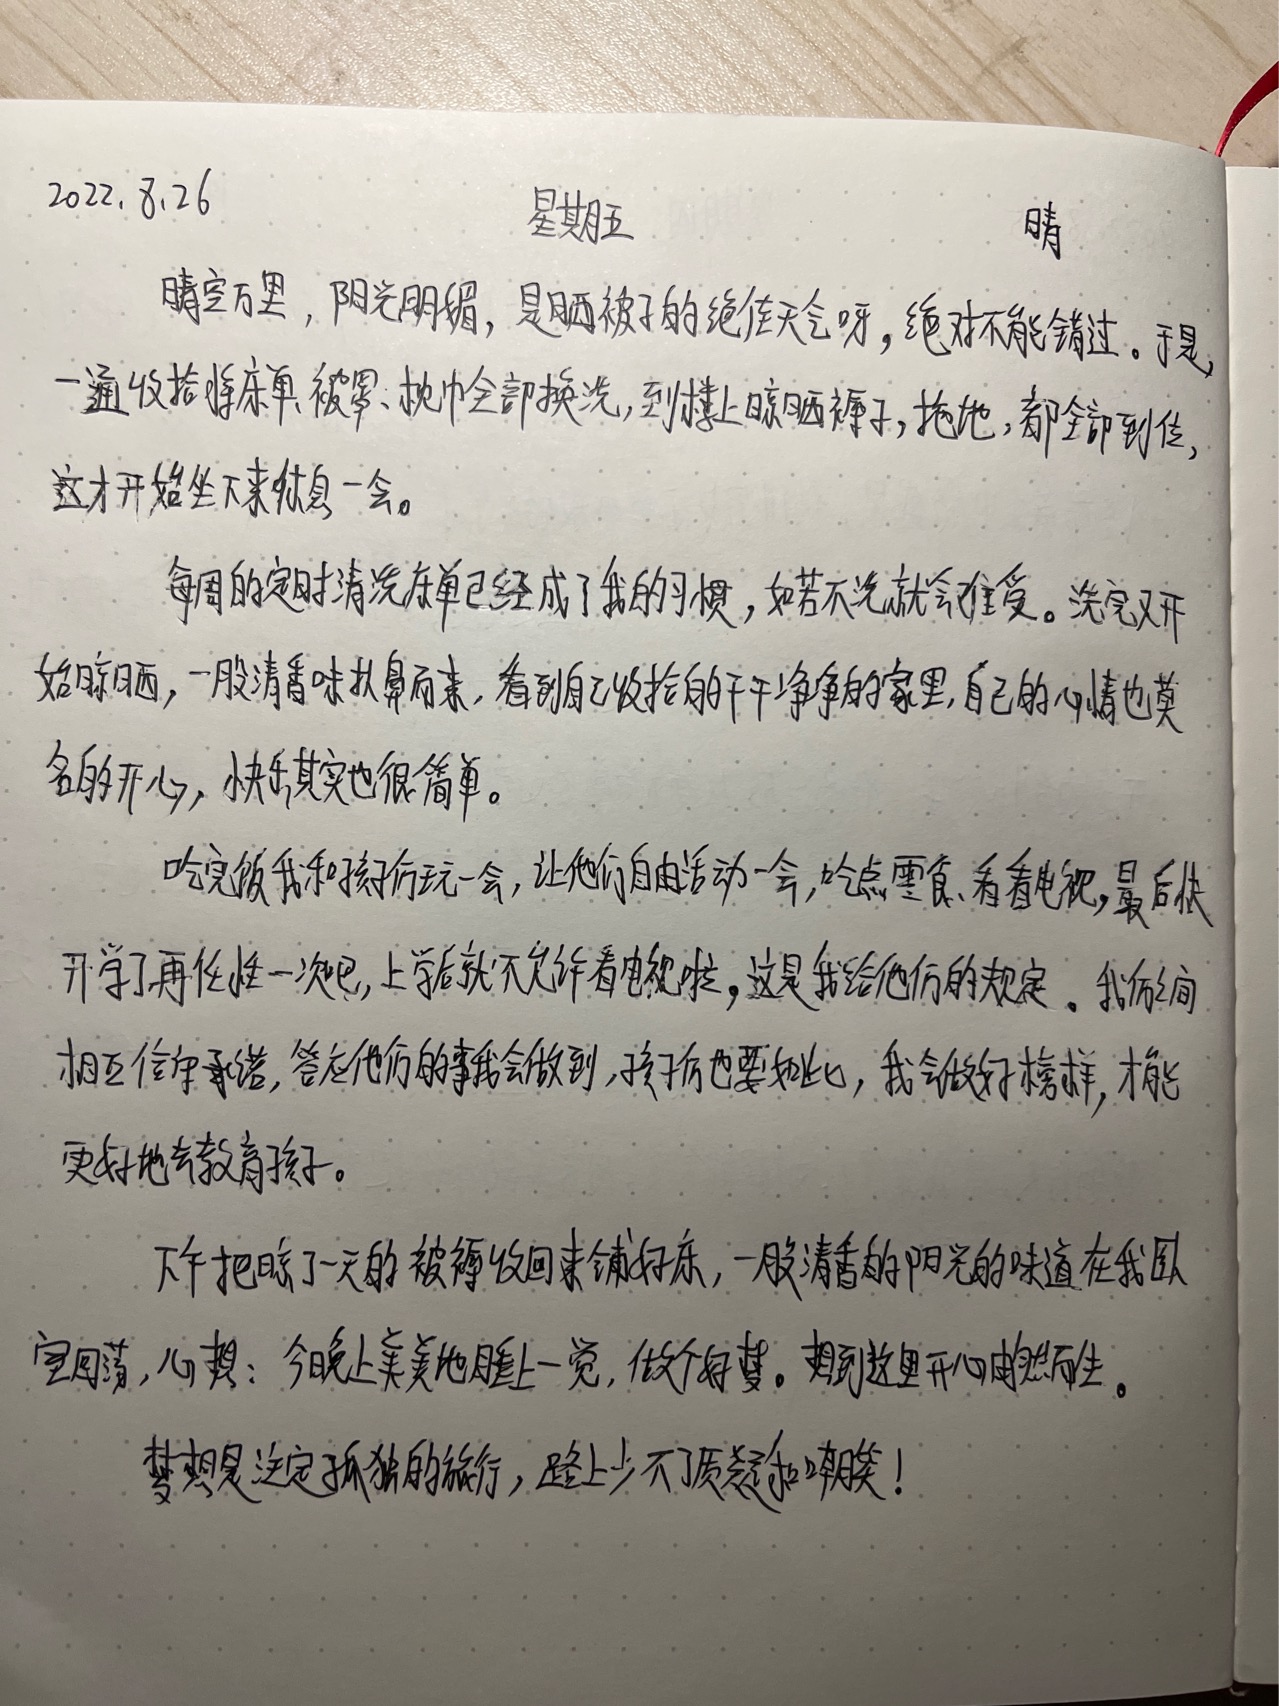 2022.8.26 星期五 晴
晴空万里，阳光明媚，是晒被子的绝佳天气呀，绝对不能错过。于是，
一通收拾将床单、被罩、枕巾全部换洗，到楼上晾晒褥子，拖地，都全部到位，
这才开始坐下来休息一会。
每周的定时清洗床单已经成了我的习惯，如若不洗就会难受。洗完又开
始晾晒，一股清香味扑鼻而来，看到自己收拾的干干净净的家里，自己的心情也莫
名的开心，快乐其实也很简单。
吃完饭我和孩子们玩一会，让他们自由活动一会，吃点零食、看看电视，最后快
开学了再任性一次吧，上学后就不允许看电视啦，这是我给他们的规定。我们之间
相互信守承诺，答应他们的事我会做到，孩子们也要如此，我会做好榜样，才能
更好地去教育孩子。
下午把晾了一天的被褥收回来铺好床，一股清香的阳光的味道在我卧
室回荡，心想：今晚上美美地睡上一觉，做个好梦。想到这里开心由然而生。
梦想是注定孤独的旅行，路上少不了质疑和嘲笑！